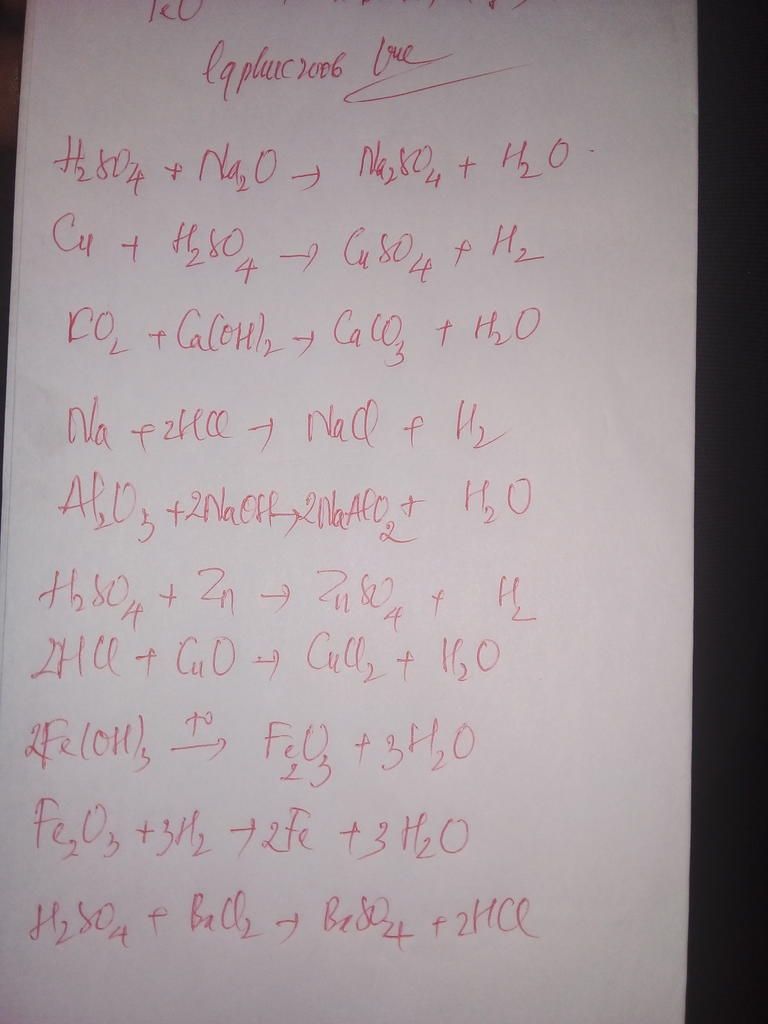 FeO
lqphuc2006
H₂SO₄ + Na₂O → Na₂SO₄ + H₂O
Cu + H₂SO₄ → CuSO₄ + H₂
CO₂ + Ca(OH)₂ → CaCO₃ + H₂O
Na + 2HCl → NaCl + H₂
Al₂O₃ + 2NaOH → 2NaAlO₂ + H₂O
H₂SO₄ + Zn → ZnSO₄ + H₂
2HCl + CuO → CuCl₂ + H₂O
2Fe(OH)₃ t⁰→ Fe₂O₃ + 3H₂O
Fe₂O₃ + 3H₂ → 2Fe + 3H₂O
H₂SO₄ + BaCl₂ → BaSO₄ + 2HCl